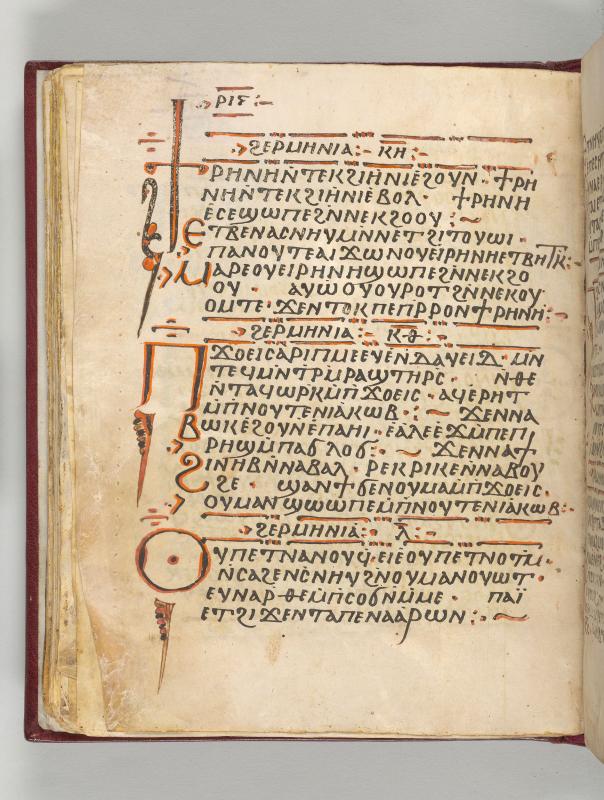 ⲣⲓⲋ:–
ϩⲉⲣⲙⲏⲛⲓⲁ: ⲕⲏ:
ϯⲣⲏⲛⲏⲛ̀ⲧⲉⲕϩⲓⲏⲛⲓⲉϩⲟⲩⲛ· ϯⲣⲏ
ⲛⲏⲛ̀ⲧⲉⲕϩⲓⲏⲛⲓⲉⲃⲟⲗ· ϯⲣⲏⲛⲏ
ⲉⲥⲉϣⲱⲡⲉϩⲛⲛⲉⲕϩⲟⲟⲩ:~
ⲉⲧⲃⲉⲛⲁⲥⲛⲏⲩⲙⲛ̀ⲛⲉⲧϩⲓⲧⲟⲩⲱⲓ·
ⲡⲁⲛⲟⲩⲧⲉⲁⲓϫⲱⲛⲟⲩⲉⲓⲣⲏⲛⲏⲉⲧⲃⲏⲧⲕ:
ⲙⲁⲣⲉⲟⲩⲉⲓⲣⲏⲛⲏϣⲱⲡⲉϩⲛ̀ⲛⲉⲕϩⲟ
ⲟⲩ· ⲁⲩⲱⲟⲩⲟⲩⲣⲟⲧϩⲛ̀ⲛⲉⲕⲟⲩ
ⲟⲙⲧⲉ· ϫⲉⲛⲧⲟⲕⲡⲉⲡⲣ̀ⲣⲟⲛϯⲣⲏⲛⲏ:
ϩⲉⲣⲙⲏⲛⲓⲁ: ⲕⲑ:
ⲡϫⲟⲉⲓⲥⲁⲣⲓⲡⲙⲉⲉⲩⲉⲛ̀ⲇⲁⲩⲉⲓⲇ· ⲙⲛ
ⲧⲉϥⲙⲛ̀ⲧⲣⲙ̀ⲣⲁϣⲧⲏⲣⲥ· ⲛ̀ⲑⲉ
ⲛ̀ⲧⲁϥⲱⲣⲕⲙ̀ⲡϫⲟⲉⲓⲥ· ⲁϥⲉⲣⲏⲧ
ⲙ̀ⲡⲛⲟⲩⲧⲉⲛⲓⲁⲕⲱⲃ:~ ϫⲉⲛⲛⲁ
ⲃⲱⲕⲉϩⲟⲩⲛⲉⲡⲁⲏⲓ· ⲉⲁⲗⲉⲉϫⲙ̀ⲡⲉⲡ
ⲣⲏϣⲙ̀ⲡⲁϭⲗⲟϭ:~ ϫⲉⲛⲛⲁϯ
ϩⲓⲛⲏⲃⲛ̀ⲛⲁⲃⲁⲗ· ⲣⲉⲕⲣⲓⲕⲉⲛ̀ⲛⲁⲃⲟⲩ
ϩⲉ· ϣⲁⲛϯϭⲉⲛⲟⲩⲙⲁⲙ̀ⲡϫⲟⲉⲓⲥ·
ⲟⲩⲙⲁⲛ̀ϣⲱⲡⲉⲙ̀ⲡⲛⲟⲩⲧⲉⲛⲓⲁⲕⲱⲃ:
ϩⲉⲣⲙⲏⲛⲓⲁ: ⲗ:
ⲟⲩⲡⲉⲧⲛⲁⲛⲟⲩϥ· ⲉⲓⲉⲟⲩⲡⲉⲧⲛⲟⲧⲙ·
ⲛ̀ⲥⲁϩⲉⲛⲥⲛⲏⲩϩⲛⲟⲩⲙⲁⲛⲟⲩⲱⲧ·
ⲉⲩⲛⲁⲣ̀ⲑⲉⲙ̀ⲡⲥⲟϭⲛⲓ̀ⲙⲙⲉ· ⲡⲁⲓ̈
ⲉⲧϩⲓϫⲉⲛⲧⲁⲡⲉⲛⲁⲁⲣⲱⲛ:~